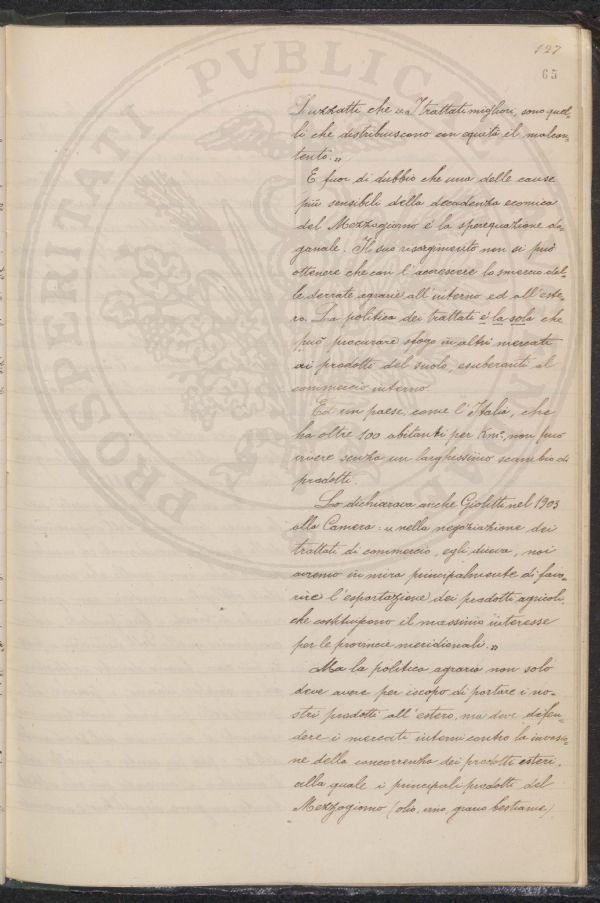 127
65
PROSPERITATI PVBLICAE
Luzzatti che « i Trattati migliori, sono quel=
li che distribuiscono con equità il malcon=
tento. »
È fuor di dubbio che una delle cause
più sensibili della decadenza ecomica
del Mezzogiorno è la sperequazione do=
ganale. Il suo risorgimento non si può
ottenere che con l'accrescere lo smercio del=
le derrate agrarie all'interno ed all'este=
ro. La politica dei trattati è la sola che
può procurare sfogo in altri mercati
ai prodotti del suolo, esuberanti al
commercio interno.
Ed un paese, come l'Italia, che
ha oltre 100 abitanti per Km², non può
vivere senza un larghissimo scambio di
prodotti.
Lo dichiarava anche Giolitti nel 1903
alla Camera: « nella negoziazione dei
trattati di commercio, egli diceva, noi
avremo in mira principalmente di favo=
rire l'esportazione dei prodotti agricoli,
che costituiscono il massimo interesse
per le provincie meridionali. »
Ma la politica agraria non solo
deve avere per iscopo di portare i no=
stri prodotti all'estero, ma deve difen=
dere i mercati interni contro la invasio=
ne della concorrenza dei prodotti esteri,
alla quale i principali prodotti del
Mezzogiorno (olio, vino, grano bestiame)